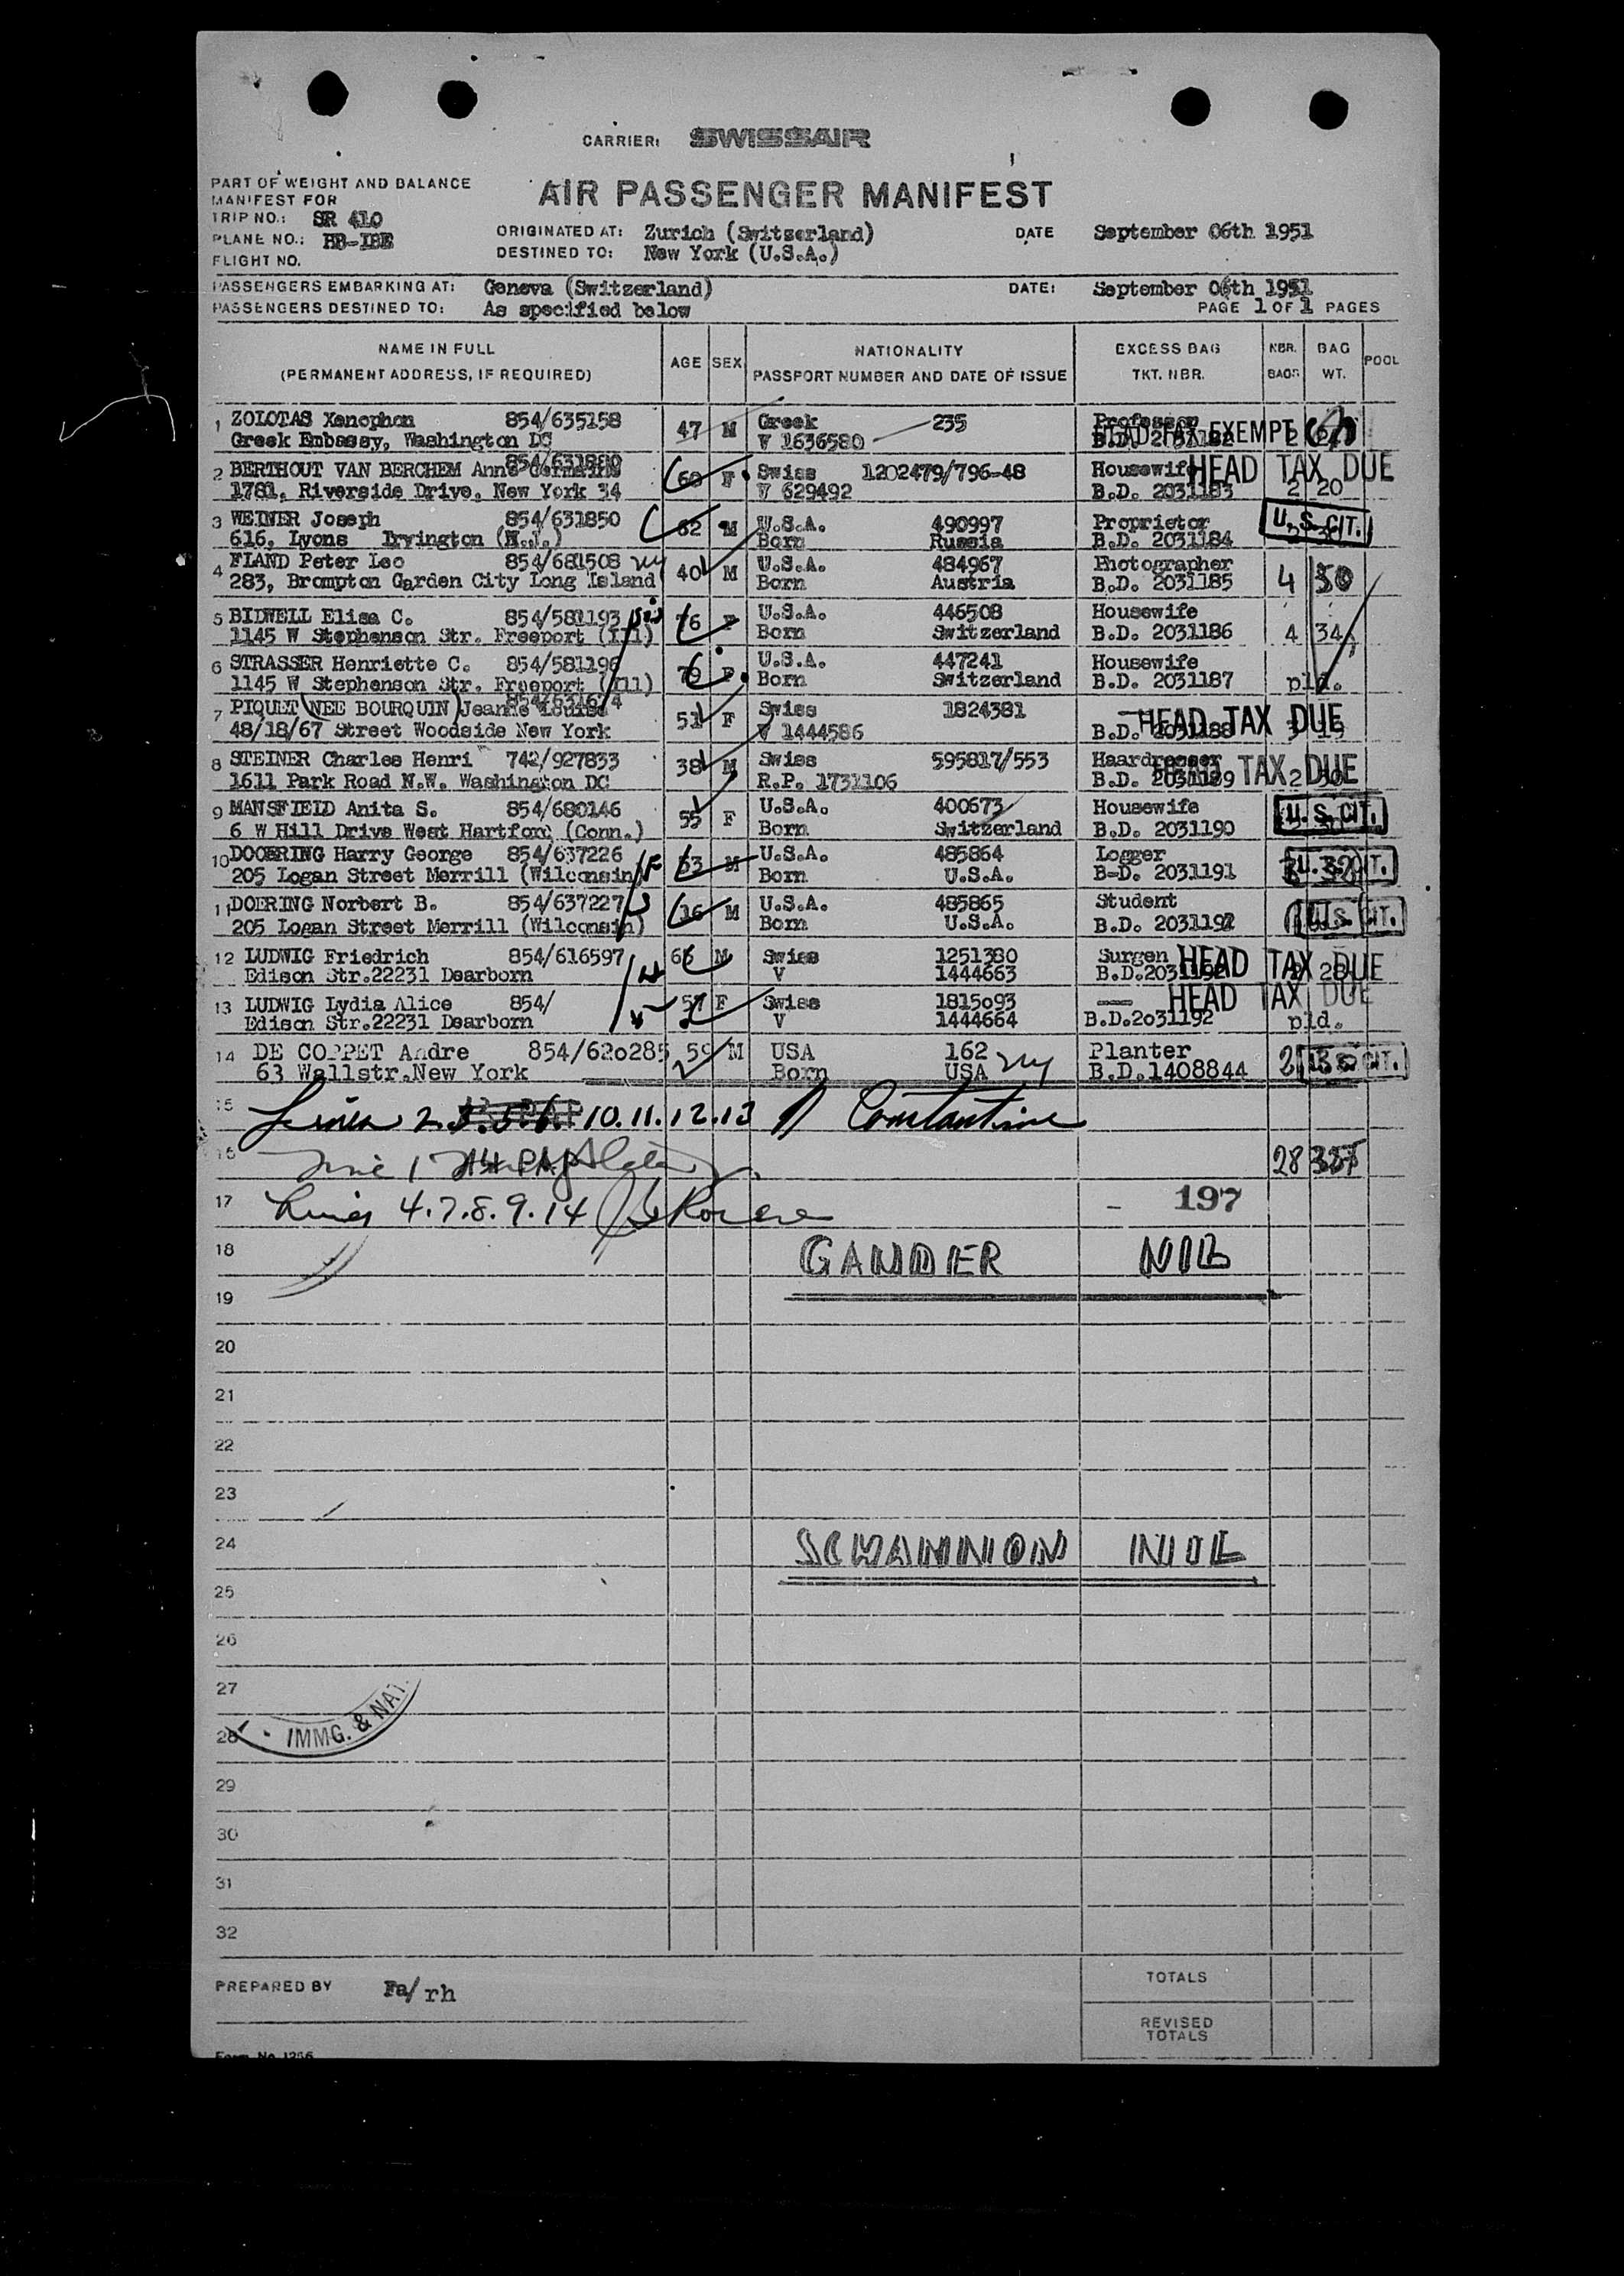 CARRIER: SWISSAIR
AIR PASSENGER MANIFEST
PART OF WEIGHT AND BALANCE
MANIFEST FOR
TRIP NO.: SR 410
PLANE NO.: HB-IBE
FLIGHT NO.
ORIGINATED AT: Zurich (Switzerland) DATE September 06th 1951
DESTINED TO: New York (U.S.A.)
PASSENGERS EMBARKING AT: Geneva (Switzerland) DATE: September 06th 1951
PASSENGERS DESTINED TO: As specified below PAGE 1 OF 1 PAGES
NAME IN FULL AGE SEX NATIONALITY EXCESS BAG NBR. BAG POOL
(PERMANENT ADDRESS, IF REQUIRED) PASSPORT NUMBER AND DATE OF ISSUE TKT. NBR. BAGS WT.
1 ZOLOTAS Xenophon 854/635158 47 M Greek 235 Professor
Greek Embassy, Washington DC V 1636580 B.D. 2031182 HEAD TAX EXEMPT 2
2 BERTHOUT VAN BERCHEM Anne Germaine 854/631880 68 F Swiss 1202479/796-48 Housewife HEAD TAX DUE
1781, Riverside Drive, New York 34 V 629492 B.D. 2031183 2 20
3 WEINER Joseph 854/631850 62 M U.S.A. 490997 Proprietor U.S. CIT.
616, Lyons Irvington (N.J.) Born Russia B.D. 2031184
4 FLAND Peter Leo 854/681508 40 M U.S.A. 484967 Photographer 4 50
283, Brompton Garden City Long Island Born Austria B.D. 2031185
5 BIDWELL Elisa C. 854/581193 76 F U.S.A. 446508 Housewife
1145 W Stephenson Str. Freeport (Ill) Born Switzerland B.D. 2031186 4 34
6 STRASSER Henriette C. 854/581196 79 F U.S.A. 447241 Housewife
1145 W Stephenson Str. Freeport (Ill) Born Switzerland B.D. 2031187 pld.
7 PIQUET (NEE BOURQUIN) Jeanne Louise 854/631674 51 F Swiss 1824381 HEAD TAX DUE
48/18/67 Street Woodside New York V 1444586 B.D. 2031188
8 STEINER Charles Henri 742/927833 38 M Swiss 595817/553 Haardresser
1611 Park Road N.W. Washington DC R.P. 1731106 B.D. 2031189 HEAD TAX DUE 2 30
9 MANSFIELD Anita S. 854/680146 55 F U.S.A. 400673 Housewife U.S. CIT.
6 W Hill Drive West Hartford (Conn.) Born Switzerland B.D. 2031190
10 DOOERING Harry George 854/637226 63 M U.S.A. 485864 Logger U.S. CIT.
205 Logan Street Merrill (Wilconsin) Born U.S.A. B-D. 2031191
11 DOERING Norbert B. 854/637227 16 M U.S.A. 485865 Student U.S. CIT.
205 Logan Street Merrill (Wilconsin) Born U.S.A. B.D. 2031192
12 LUDWIG Friedrich 854/616597 66 M Swiss 1251380 Surgen HEAD TAX DUE
Edison Str.22231 Dearborn V 1444663 B.D.2031192 28
13 LUDWIG Lydia Alice 854/ 57 F Swiss 1815093 HEAD TAX DUE
Edison Str.22231 Dearborn V 1444664 B.D.2031192 pld.
14 DE COPPET Andre 854/620285 59 M USA 162 Planter 2 U.S. CIT.
63 Wallstr.New York Born USA B.D.1408844
15 Lines 2.3.5.6. 10.11.12.13 Constantine
16 Line 1 28
17 Lines 4.7.8.9.14 197
18 GANDER NIL
19
20
21
22
23
24 SCHANNON NIL
25
26
27
28 IMMG. & NAT.
29
30
31
32
PREPARED BY Fa/rh
TOTALS
REVISED
TOTALS
Form No 1256